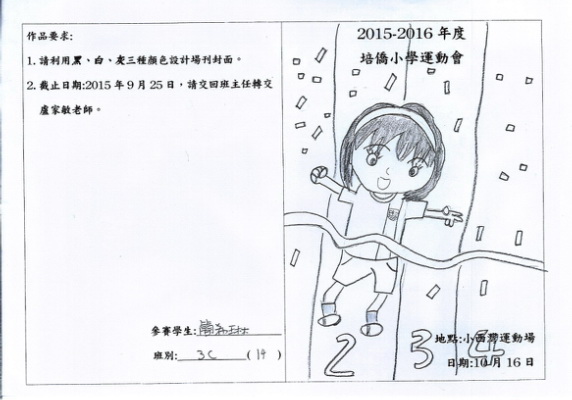 作品要求:
1. 請利用黑、白、灰三種顏色設計場刊封面。
2. 截止日期:2015 年 9 月 25 日，請交回班主任轉交
盧家敏老師。
參賽學生:
班別: 3C (19)
2015-2016 年度
培僑小學運動會
2 3 4
地點:小西灣運動場
日期:10 月 16 日